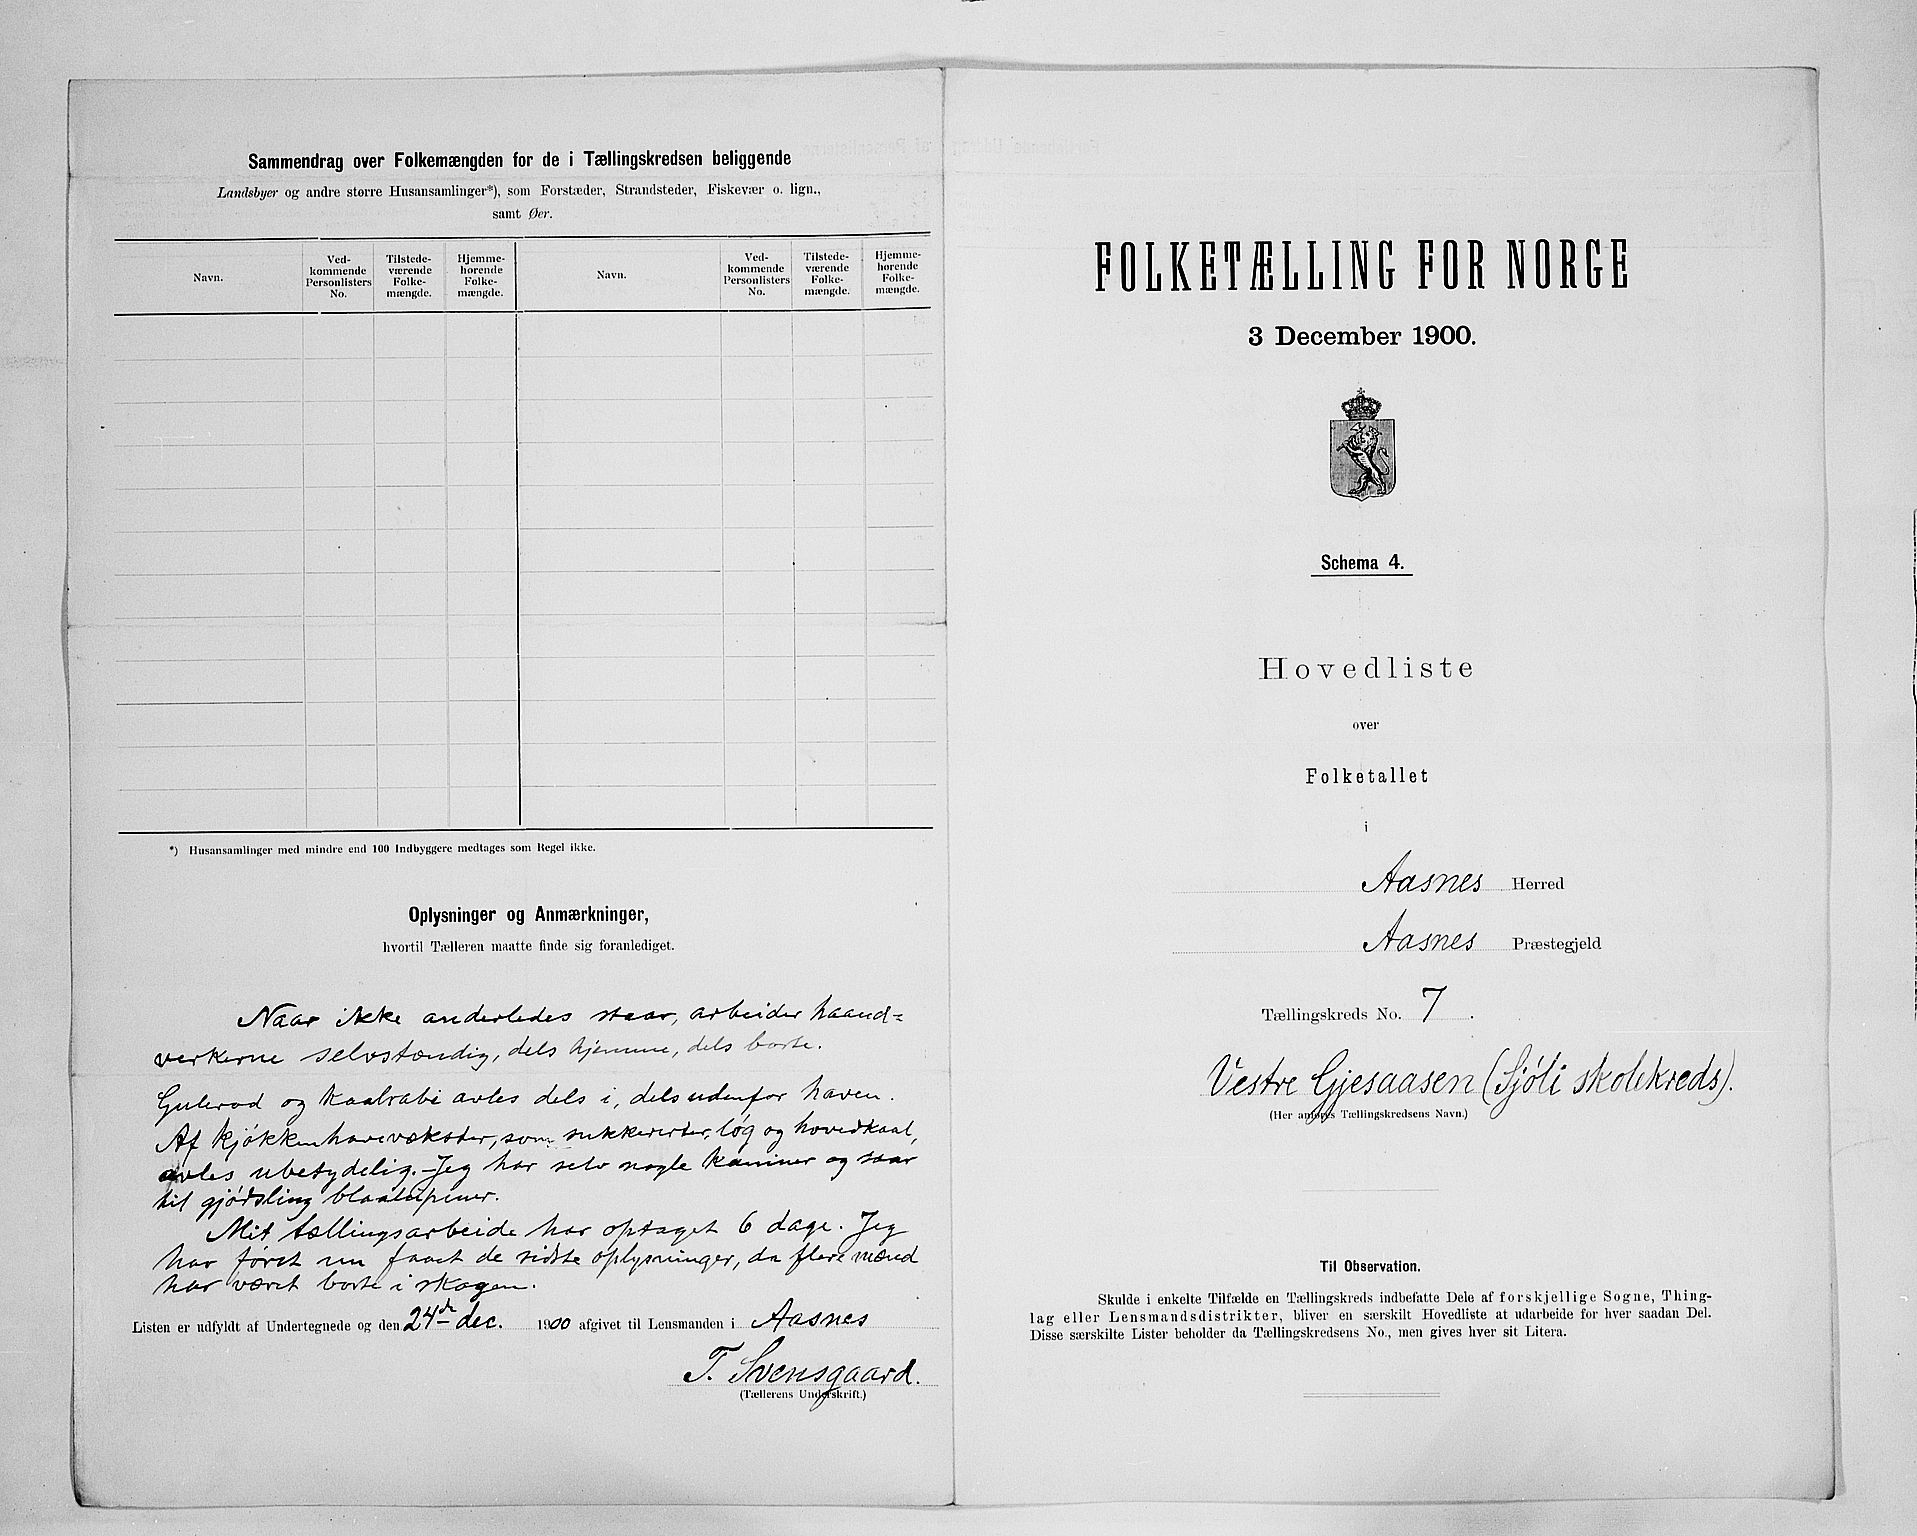 Sammendrag over Folkemængden for de i Tællingskredsen beliggende
Landsbyer og andre større Husansamlinger*), som Forstæder, Strandsteder, Fiskevær o. lign.,
samt Øer.
Navn.
Ved-
kommende
Personlisters
No.
Tilstede-
værende
Folke-
mængde.
Hjemme-
hørende
Folke-
mængde.
Navn.
Ved-
kommende
Personlisters
No.
Tilstede-
værende
Folke-
mængde.
Hjemme-
hørende
Folke-
mængde.
*) Husansamlinger med mindre end 100 Indbyggere medtages som Regel ikke.
Oplysninger og Anmærkninger,
hvortil Tælleren maatte finde sig foranlediget.
Naar ikke anderledes staar, arbeider haand=
verkerne selvstændig, dels hjemme, dels borte.
Gulerod og kaalrabi avles dels i, dels udenfor haven.
Af kjøkkenhavevækster, som sukkererter, løg og hovedkaal,
avles ubetydelig. - Jeg har selv nogle kaniner og saar
til gjødsling blaalupiner.
Mit tællingsarbeide har optaget 6 dage. Jeg
har først nu faaet de sidste oplysninger, da flere mænd
har været borte i skogen.
Listen er udfyldt af Undertegnede og den 24de dec. 1900 afgivet til Lensmanden i Aasnes
T. Svensgaard.
(Tællerens Underskrift.)
FOLKETÆLLING FOR NORGE
3 December 1900.
Schema 4.
Hovedliste
over
Folketallet
i
Aasnes Herred
Aasnes Præstegjeld
Tællingskreds No. 7.
Vestre Gjesaasen (Sjøli skolekreds).
(Her anføres Tællingskredsens Navn.)
Til Observation.
Skulde i enkelte Tilfælde en Tællingskreds indbefatte Dele af forskjellige Sogne, Thing-
lag eller Lensmandsdistrikter, bliver en særskilt Hovedliste at udarbeide for hver saadan Del.
Disse særskilte Lister beholder da Tællingskredsens No., men gives hver sit Litera.